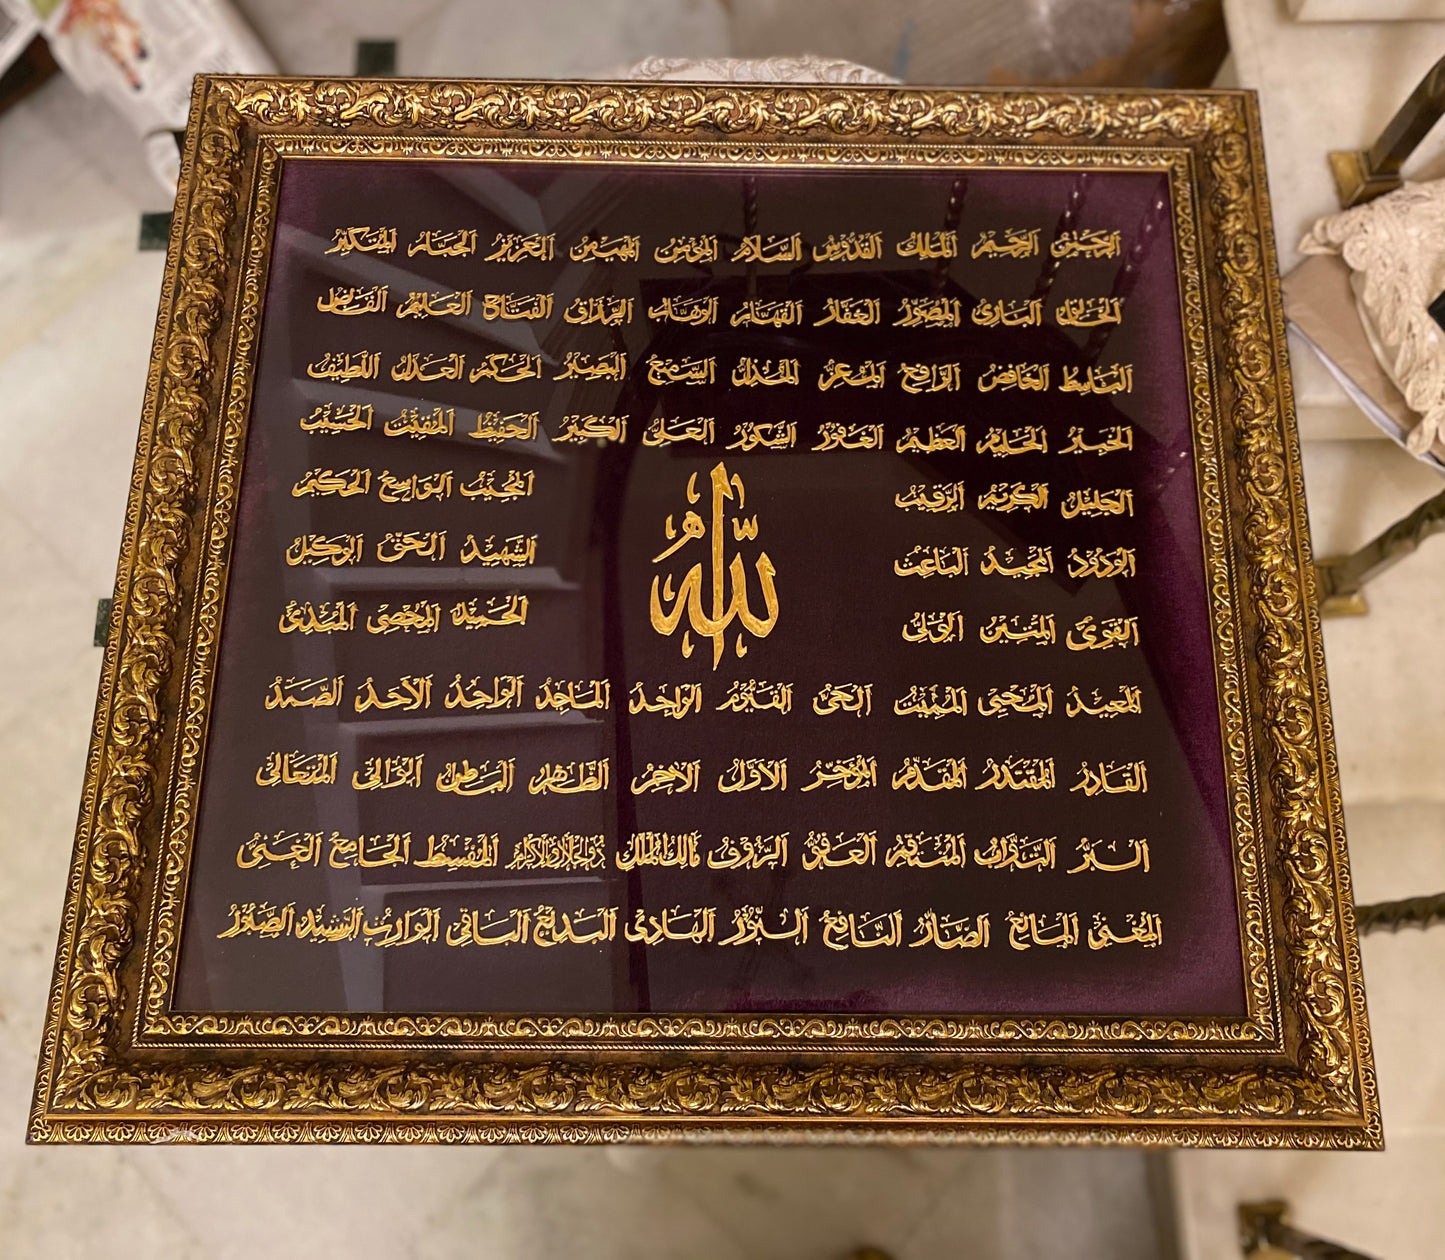 الرحمن الرحيم الملك القدوس السلام المؤمن المهيمن العزيز الجبار المتكبر
الخالق البارئ المصور الغفار القهار الوهاب الرزاق الفتاح العليم القابض
الباسط الخافض الرافع المعز المذل السميع البصير الحكم العدل اللطيف
الخبير الحليم العظيم الغفور الشكور العلي الكبير الحفيظ المقيت الحسيب
الجليل الكريم الرقيب المجيب الواسع الحكيم
الله
الودود المجيد الباعث الشهيد الحق الوكيل
القوي المتين الولي الحميد المحصي المبدئ
المعيد المحيي المميت الحي القيوم الواجد الماجد الواحد الأحد الصمد
القادر المقتدر المقدم المؤخر الأول الآخر الظاهر الباطن الوالي المتعالي
البر التواب المنتقم العفو الرؤوف مالك الملك ذو الجلال والإكرام المقسط الجامع الغني
المغني المانع الضار النافع النور الهادي البديع الباقي الوارث الرشيد الصبور